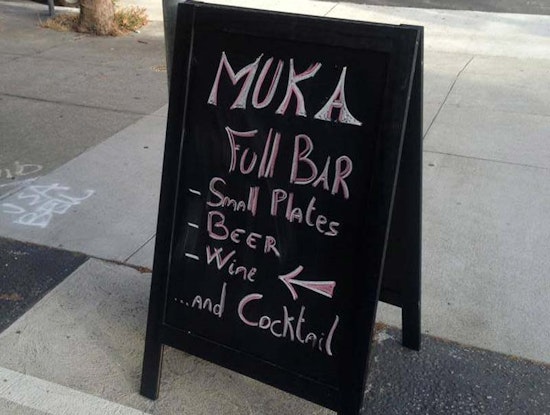 MUKA
Full BAR
- Small Plates
- BEER
- Wine
...and Cocktail